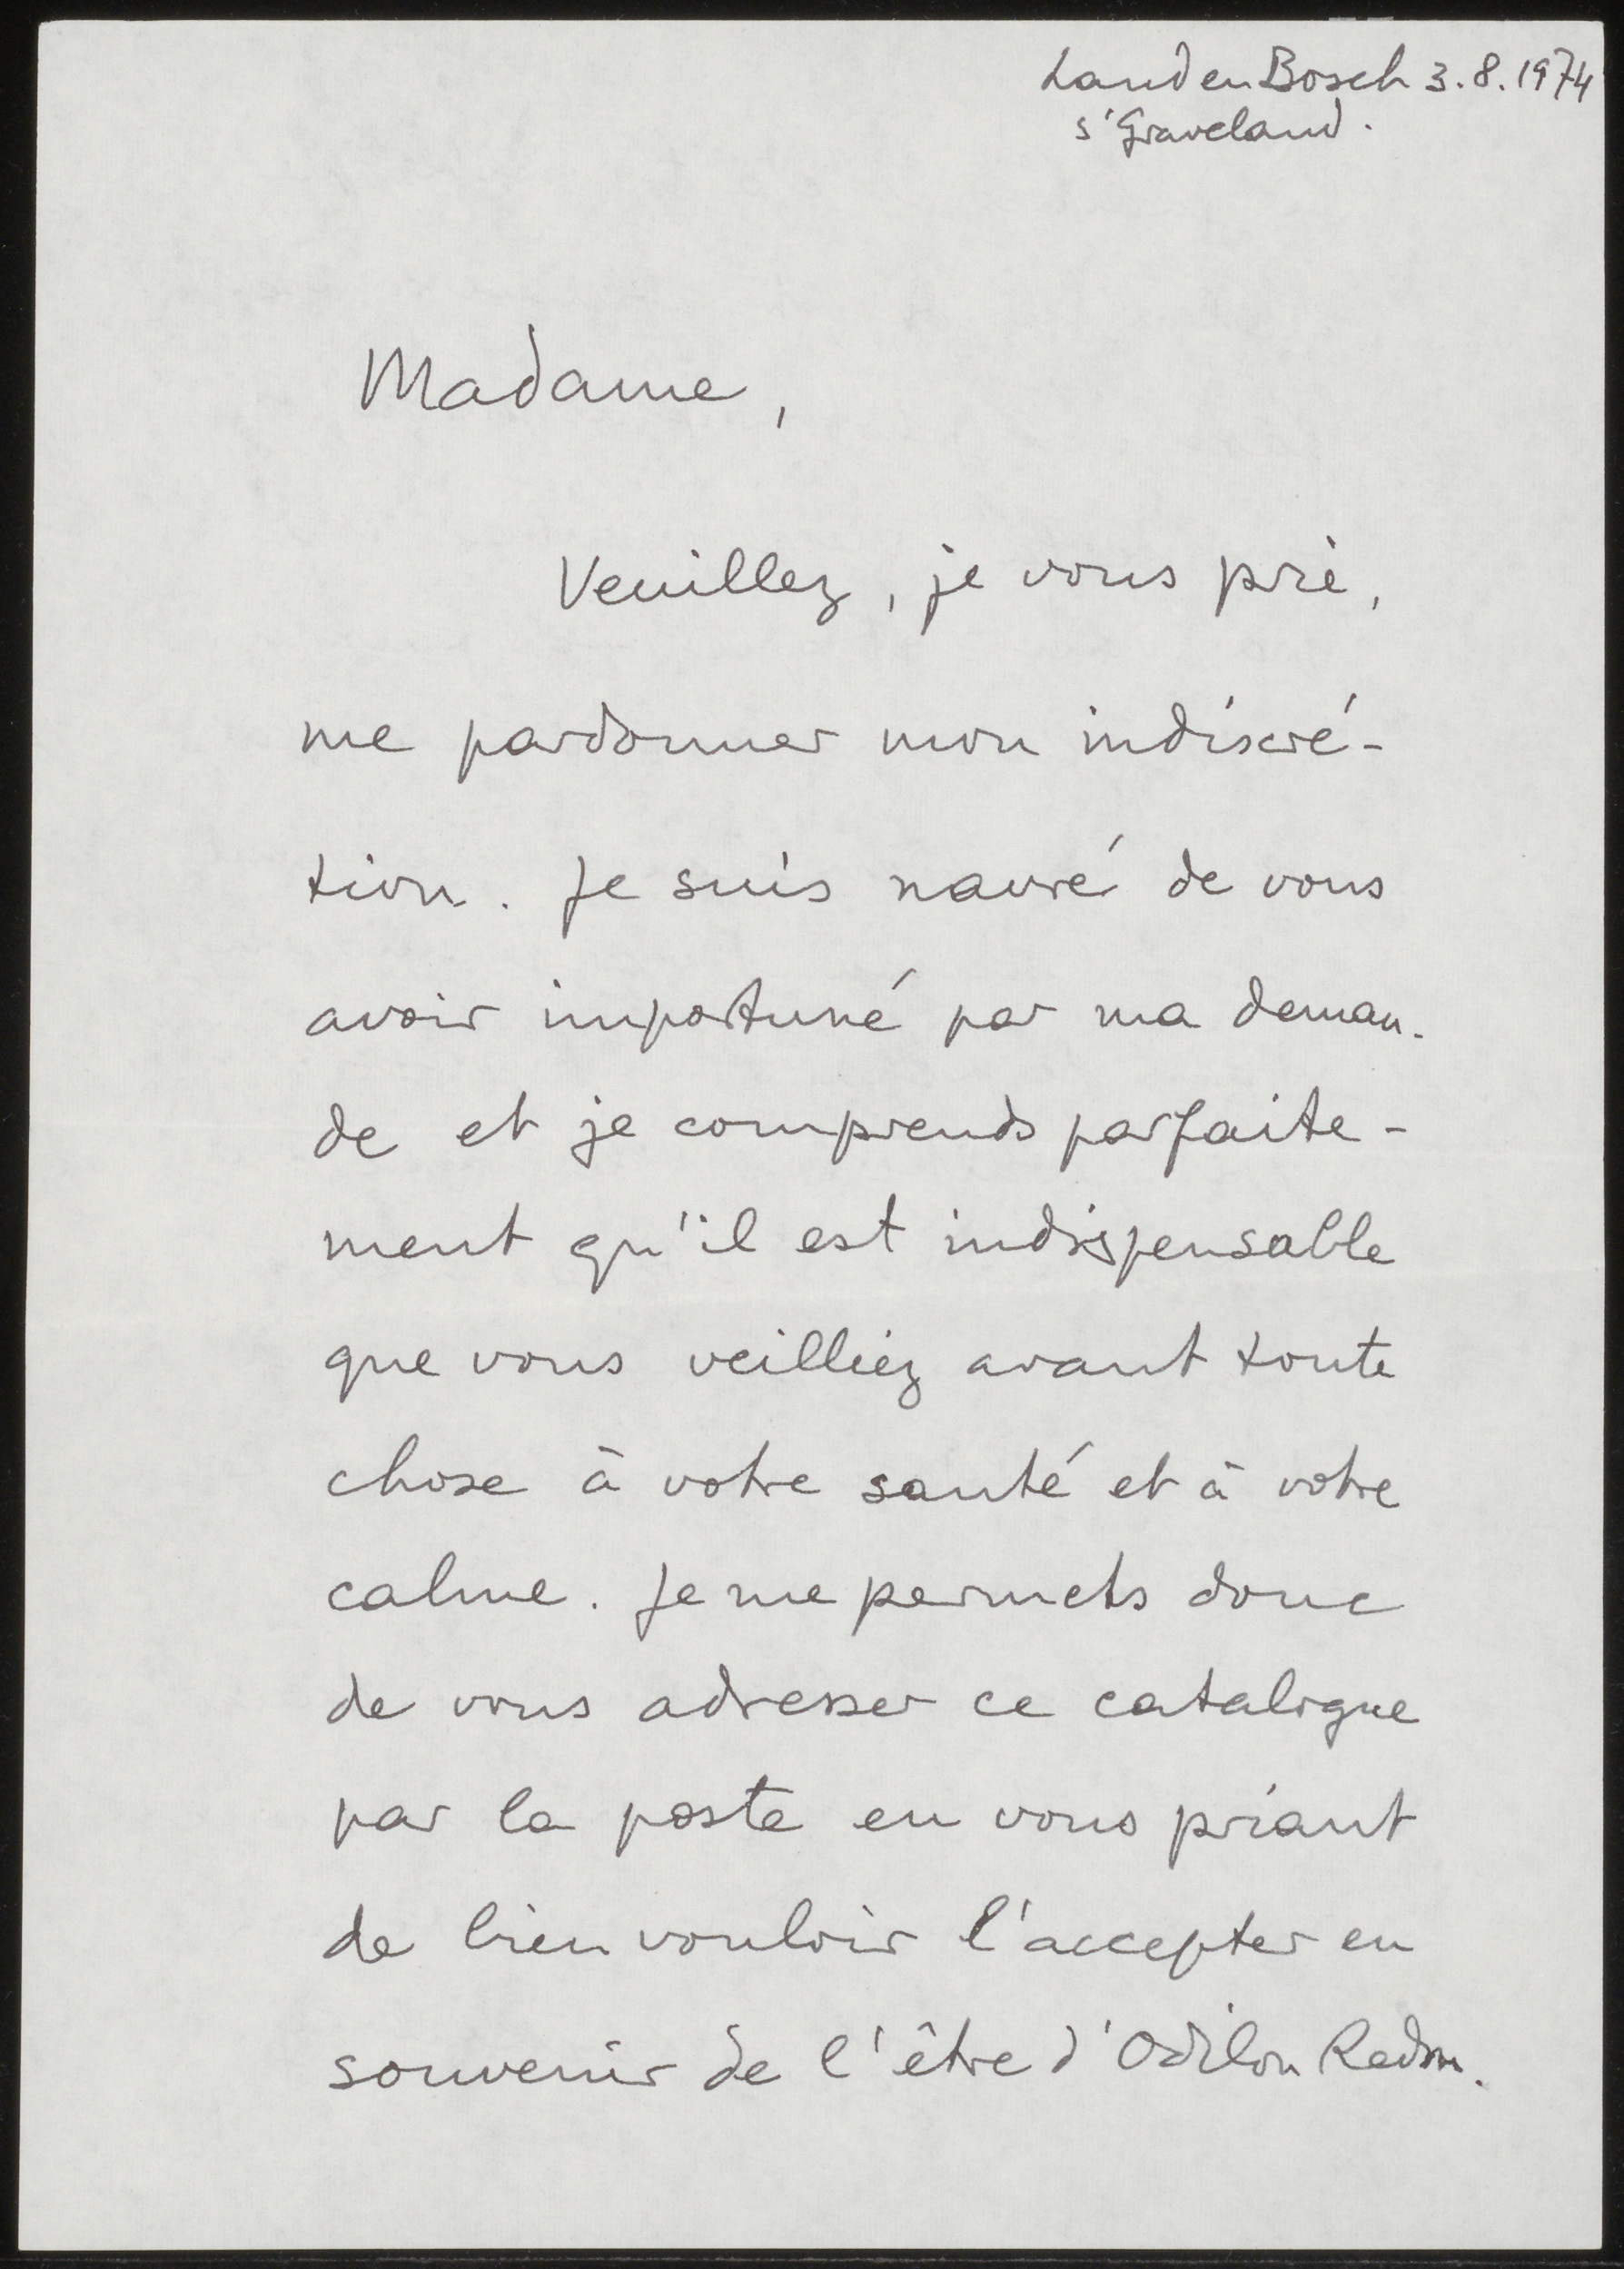 Land en Bosch 3.8.1974
s'Graveland.
Madame,
Veuillez, je vous prie,
me pardonner mon indiscré-
tion. Je suis navré de vous
avoir importuné par ma deman-
de et je comprends parfaite-
ment qu'il est indispensable
que vous veilliez avant toute
chose à votre santé et à votre
calme. Je me permets donc
de vous adresser ce catalogue
par la poste en vous priant
de bien vouloir l'accepter en
souvenir de l'être d'Odilon Redon.